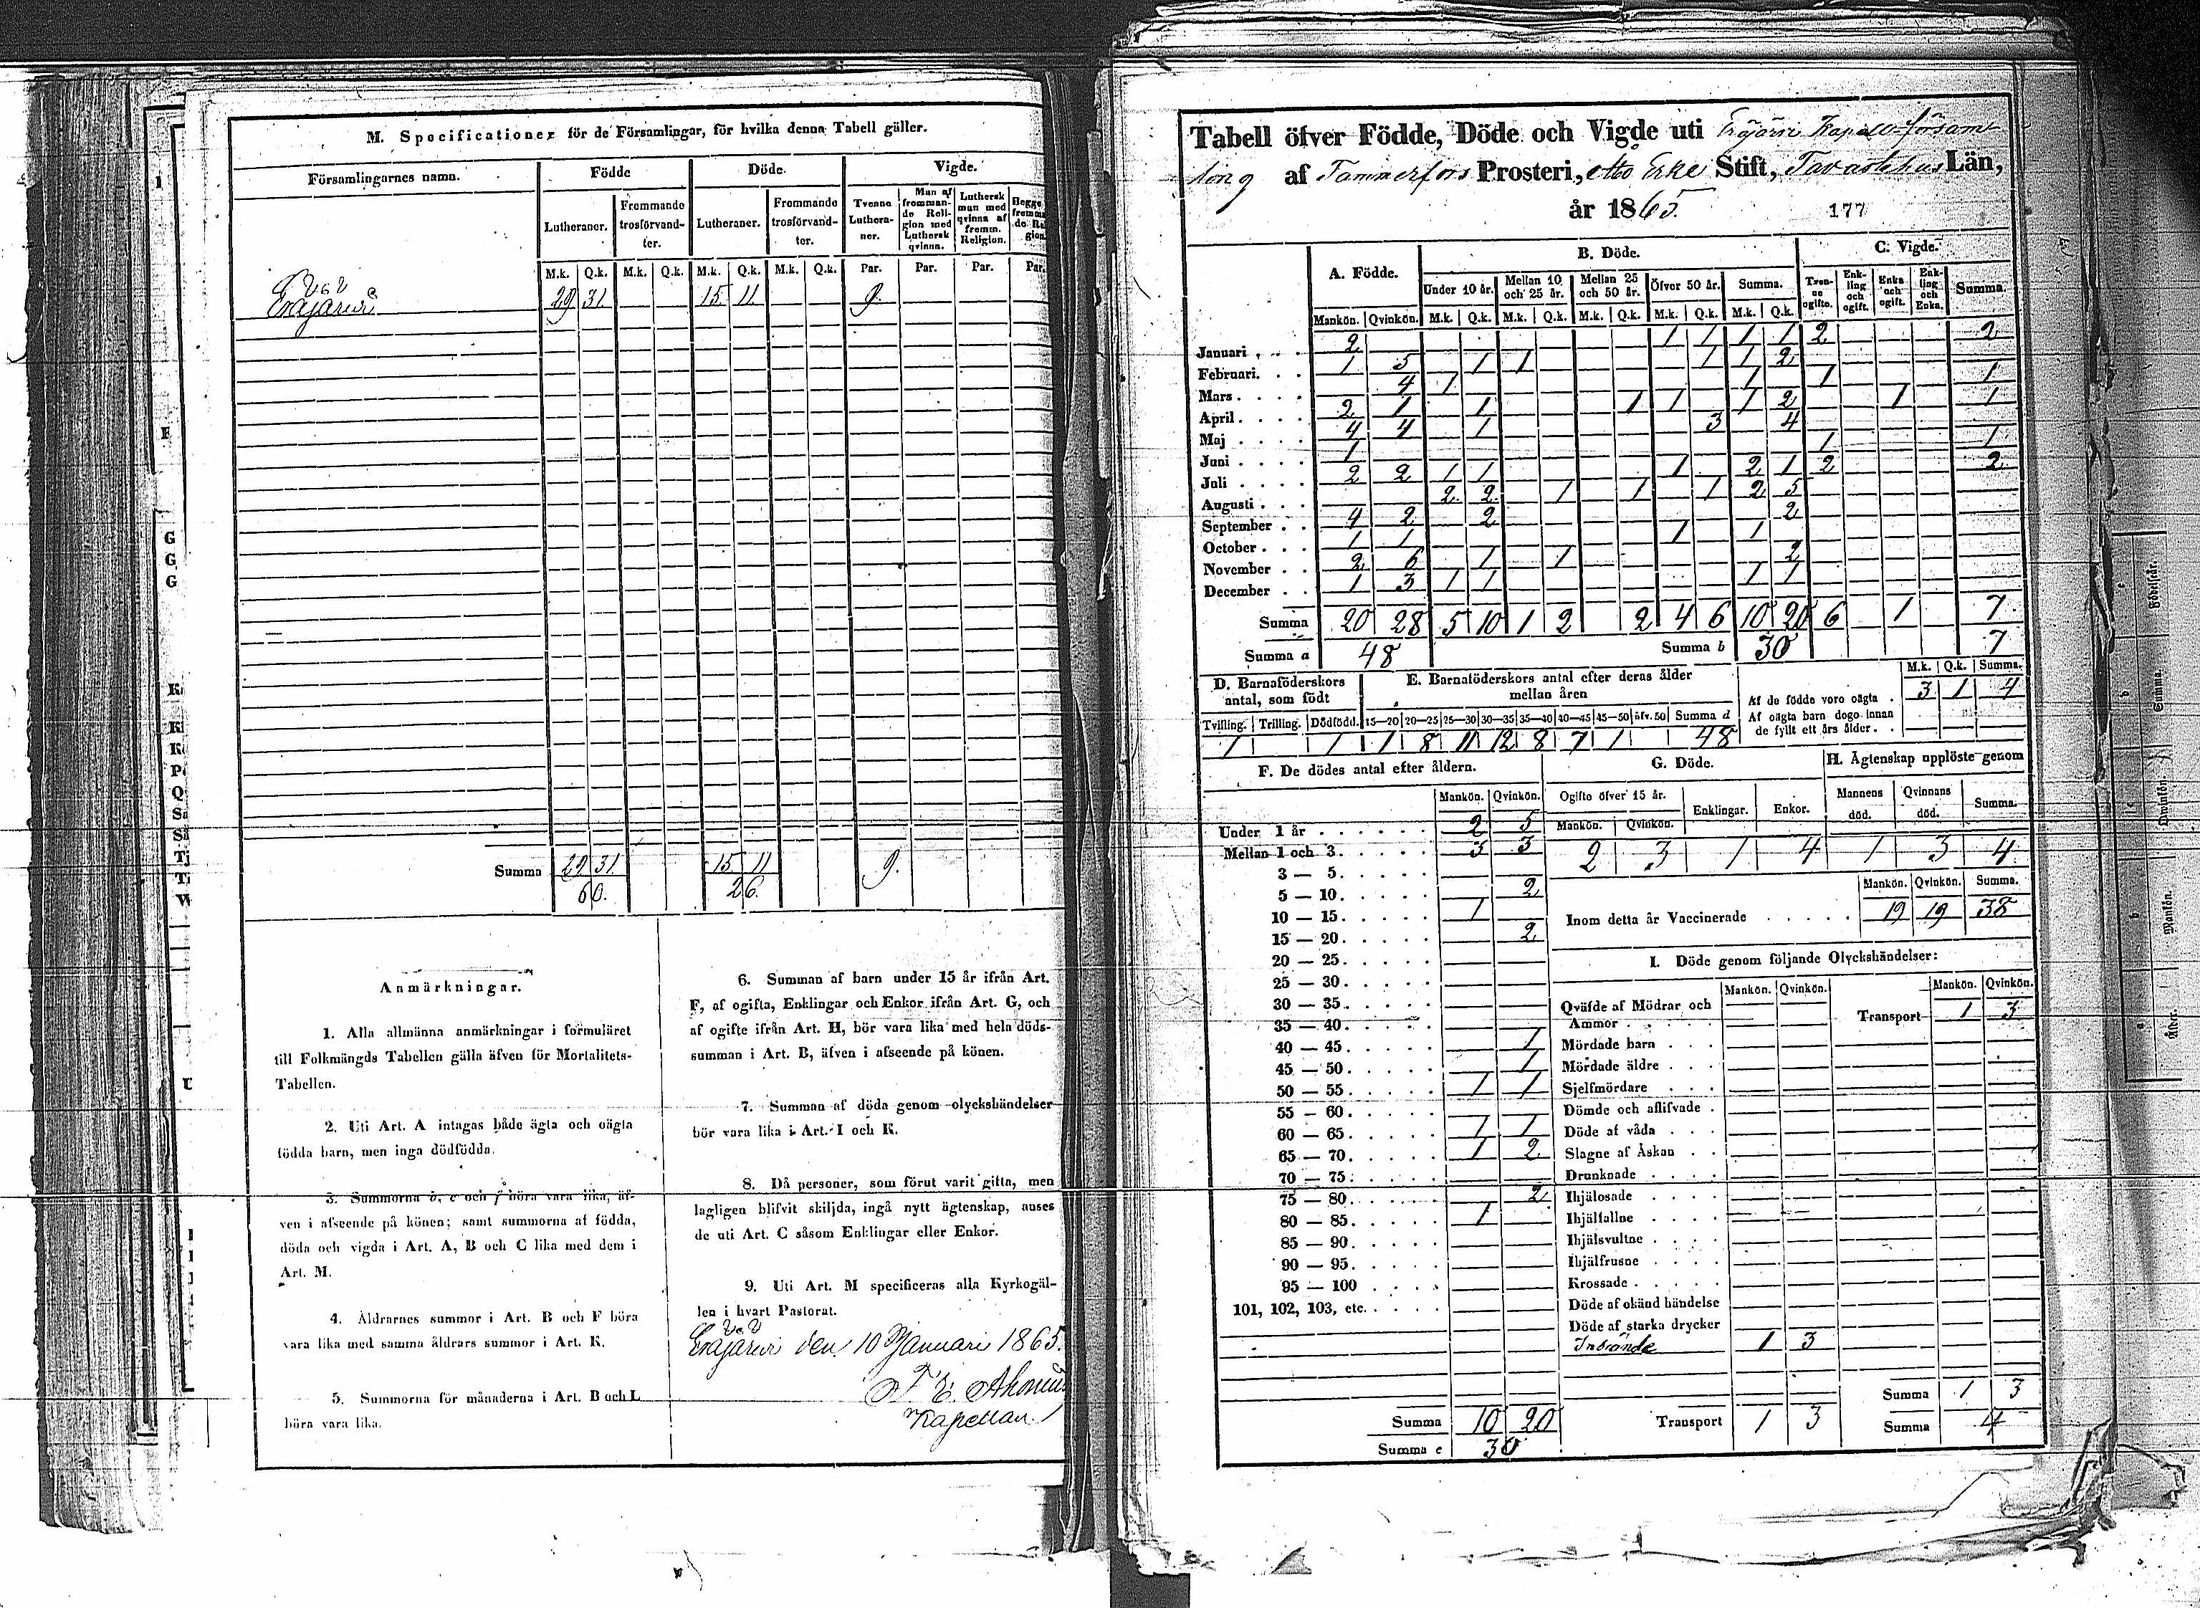 M. Specificationer för de Församlingar, för hvilka denna Tabell gäller.
Församlingarnes namn.
Födde
Döde.
Vigde.
Lutheraner.
Frommande trosförvandter.
Lutheraner.
Frommande trosförvandter.
Tvenne Lutheraner.
Man af frommande Religion med Luthersk qvinna.
Luthersk man med qvinna af fremm. Religion.
M.k. Q.k. M.k. Q.k. M.k. Q.k. M.k. Q.k. Par. Par. Par. Par.
Eräjärvi 29 31 15 11 9.
Summa 29 31 15 11 9.
60. 26.
Anmärkningar.
1. Alla allmänna anmärkningar i formuläret
till Folkmängds Tabellen gälla äfven för Mortalitets-
Tabellen.
2. Uti Art. A intagas både ägta och oägta
födda barn, men inga dödfödda.
3. Summorna b, e och f böra vara lika, äf-
ven i afseende på könen; samt summorna af födda,
döda och vigda i Art. A, B och C lika med dem i
Art. M.
4. Åldrarnes summor i Art. B och F böra
vara lika med samma åldrars summor i Art. K.
5. Summorna för månaderna i Art. B och L
böra vara lika.
6. Summan af barn under 15 år ifrån Art.
F, af ogifta, Enklingar och Enkor ifrån Art. G, och
af ogifte ifrån Art. H, bör vara lika med hela döds-
summan i Art. B, äfven i afseende på könen.
7. Summan af döda genom olyckshändelser
bör vara lika i Art. I och K.
8. Då personer, som förut varit gifta, men
lagligen blifvit skiljda, ingå nytt ägtenskap, anses
de uti Art. C såsom Enklingar eller Enkor.
9. Uti Art. M specificeras alla Kyrkogäl-
len i hvart Pastorat.
Eräjärvi den 10 Januari 1865.
Kapellan.
Tabell öfver Födde, Döde och Vigde uti Eräjärvi Kapellförsam-
ling af Tammerfors Prosteri, Åbo Erke Stift, Tavastehus Län,
år 1865. 177
A. Födde.
B. Döde.
C. Vigde.
Under 10 år. Mellan 10 och 25 år. Mellan 25 och 50 år. Öfver 50 år. Summa.
Tvenne ogifte. Enkling och ogift. Enka och ogift. Enkling och Enka. Summa.
Mankön. Qvinkön. M.k. Q.k. M.k. Q.k. M.k. Q.k. M.k. Q.k. M.k. Q.k.
Januari 2 1 1 1 1 2 2
Februari. 1 5 1 1 1 1 2
Mars 4 1 1 1 1
April 2 1 1 1 1 1 2 1 1
Maj 4 4 1 3 4
Juni 1 1 1
Juli 2 2 1 1 1 2 1 2 2
Augusti 2 2 1 1 1 2 5
September 4 2 2 2
October 1 1 1 1
November 2 6 1 1 2
December 1 3 1 1 1 1
Summa 20 28 5 10 1 2 2 4 6 10 20 6 1 7
Summa a 48 Summa b 30 7
D. Barnaföderskors antal, som födt
E. Barnaföderskors antal efter deras ålder mellan åren
M.k. Q.k. Summa.
Af de födde voro oägta 3 1 4
Af oägta barn dogo innan
de fyllt ett års ålder
Tvilling. Trilling. Dödfödd. 15—20 20—25 25—30 30—35 35—40 40—45 45—50 öfv. 50 Summa d
1 1 1 8 11 12 8 7 1 48
F. De dödes antal efter åldern.
Mankön. Qvinkön.
Under 1 år 2 5
Mellan 1 och 3. 3 3
3 — 5.
5 — 10. 2
10 — 15. 1
15 — 20. 2
20 — 25.
25 — 30.
30 — 35.
35 — 40.
40 — 45. 1
45 — 50. 1
50 — 55. 1 1
55 — 60.
60 — 65. 1 1
65 — 70. 1 2
70 — 75.
75 — 80. 2
80 — 85. 1
85 — 90.
90 — 95.
95 — 100
101, 102, 103, etc.
Summa 10 20
Summa e 30
G. Döde.
Ogifte öfver 15 år. Enklingar. Enkor.
Mankön. Qvinkön.
2 3 1 4
H. Ägtenskap upplöste genom
Mannens död. Qvinnans död. Summa.
1 3 4
Mankön. Qvinkön. Summa.
Inom detta år Vaccinerade 19 19 38
I. Döde genom följande Olyckshändelser:
Mankön. Qvinkön. Mankön. Qvinkön.
Qväfde af Mödrar och
Ammor
Transport 1 3
Mördade barn
Mördade äldre
Sjelfmördare
Dömde och aflifvade
Döde af våda
Slagne af Åskan
Drunknade
Ihjälosade
Ihjälfallne
Ihjälsvultne
Ihjälfrusne
Krossade
Döde af okänd händelse
Döde af starka drycker
Inbrände 1 3
Summa 1 3
Transport 1 3 Summa 4